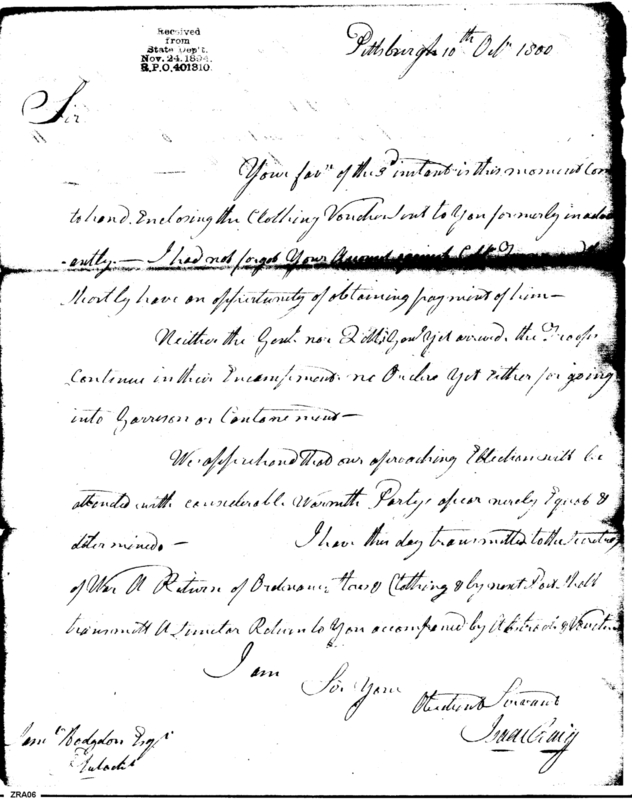 Received
from
State Dep't.
Nov. 24. 1894.
R.P.O. 401310.
Pittsburgh 10th Octr 1800
Sir
Your favr of the 3d instant is this moment Com
to hand. Enclosing the Clothing Vouchers sent to You formerly inadv
-antly.— I had not forgot Your Account against
Shortly have an oppertunity of obtaining payment of him—
Neither the Genl. nor Yet arrived. the Troops
Continue in their Encampment. no Orders Yet either for going
into Garrison or Cantonement—
We apprehend that our aproaching Election will be
attended with considerable Warmth Partys apear nerely Equal &
determined.— I have this day transmitted to the Secretary
of War A Return of Ordinance Stores Clothing & by next Post shall
transmitt A Similar Return to You accompaned by Abstracts & Vouchers
I am
Sir Your
Obedient Servant
Isaac Craig
Saml Hodgdon Esqr
ZRA06